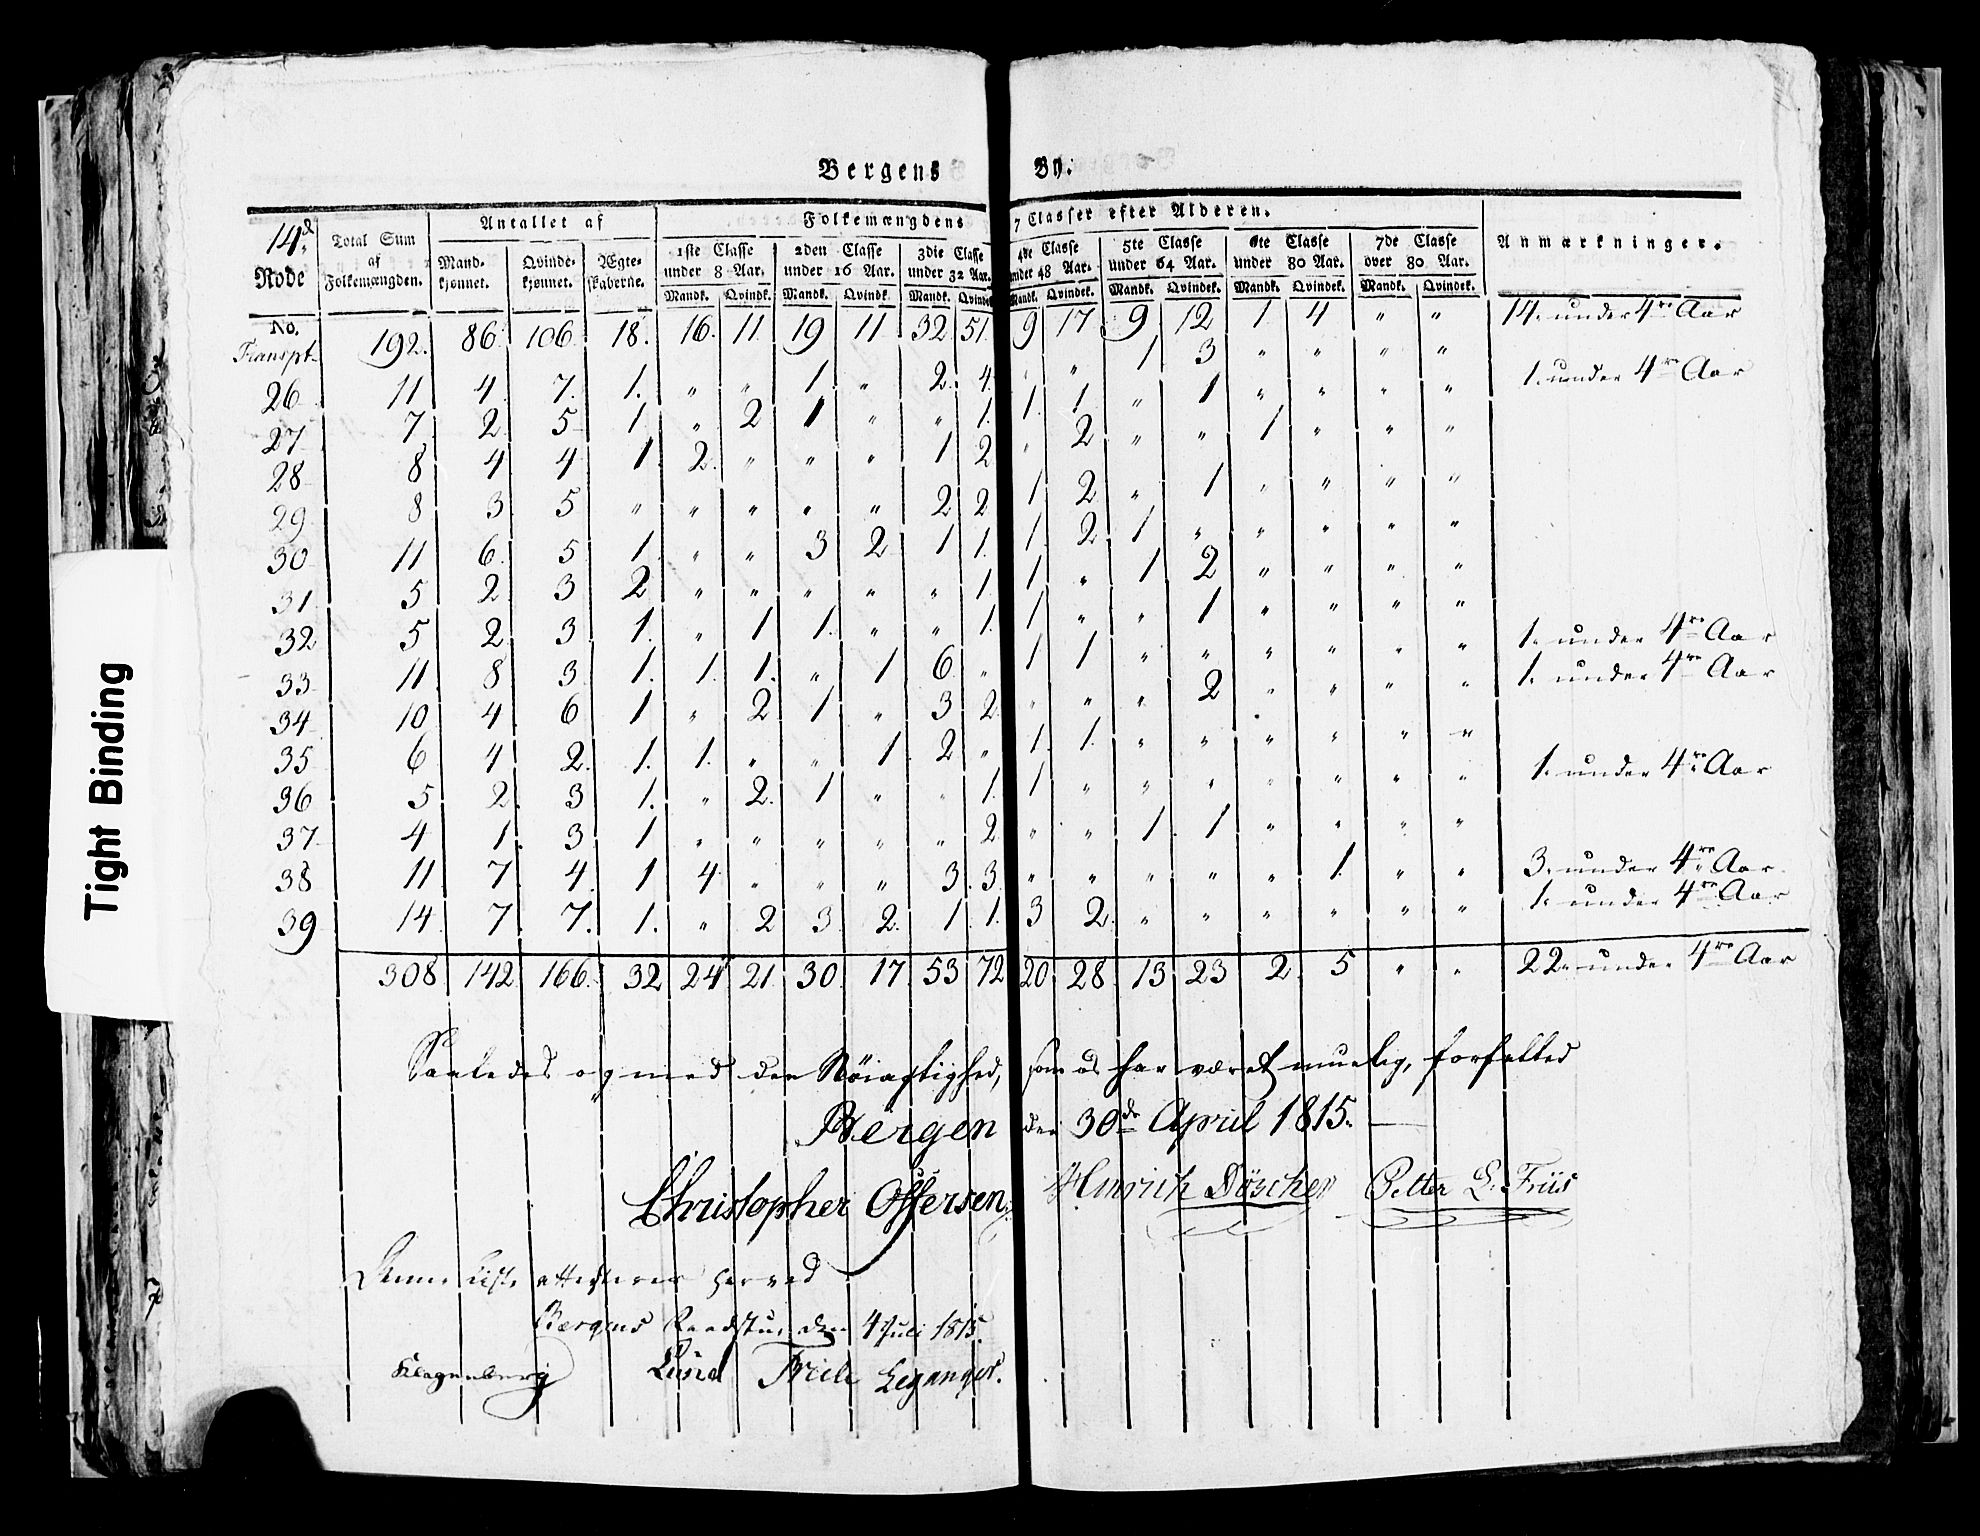 Bergens By.
14d Rode No. | Total Sum af Folkemængden. | Antallet af Mandkjønnet. | Qvindekjønnet. | Ægteskaberne. | Folkemængdens 7 Classer efter Alderen. 1ste Classe under 8 Aar. Mandk. | Qvindk. | 2den Classe under 16 Aar. Mandk. | Qvindk. | 3die Classe under 32 Aar. Mandk. | Qvindek. | 4de Classe under 48 Aar. Mandk. | Qvindek. | 5te Classe under 64 Aar. Mandk. | Qvindek. | 6te Classe under 80 Aar. Mandk. | Qvindek. | 7de Classe over 80 Aar. Mandk. | Qvindek. | Anmærkninger.
Transpt. 192. 86. 106. 18. 16. 11 19 11 32 51. 9 17 9 12 1 4 " " 14. under 4re Aar
26 11 4 7. 1. " " 1. " 2. 4. " " 1 3 " " " " 1. under 4re Aar
27 7. 2 5 1 " 2 1 " " 1. 1. 1 " 1 " " " "
28 8 4 4 1 2. " " " 1 2 " 2 " " 1 " " "
29 8 3 5 " " " " " 2 2 1 2 " 1 " " " "
30 11 6. 5 1. " " 3 2 1 1. 1 2 1 " " " " "
31. 5 2 3 2 " " " " " 1 1 " 1 2 " " " "
32 5 2. 3 1. " 1 1. " " 1. 1 " " 1 " " " " 1. under 4re Aar
33 11 8 3 1. 1. 1. " 1 6. " 1 1 " " " " " " 1. under 4re Aar
34 10 4 6 1 " 2 1 " 3 2. " " " 2 " " " "
35 6 4 2. 1. 1. " " 1 2 " 1. 1. " " " " " " 1. under 4re Aar
36 5 2. 3 1. " 2. 1 " " 1. 1 " " " " " " "
37 4 1 3 1 " " " " " 2 " " 1. 1 " " " "
38 11 7 4 1 4 " " " 3. 3 " " " " " 1. " " 3. under 4re Aar.
39 14 7 7. 1. " 2 3 2. 1 1. 3 2. " " " " " " 1. under 4re Aar
308 142 166. 32 24 21 30 17 53 72 20 28 13 23 2. 5 " " 22. under 4re Aar
Saaledes og med den Nöiagtighed, som os har været muelig, forfatted
Bergen den 30de April 1815.
Christopher Offersen. Hinrich Döscher Petter L. Friis
Denne Liste attesteres herved
Bergens Raadstue den 4 Juli 1815.
Klagenberg Lund Friele Leganger.
Tight Binding